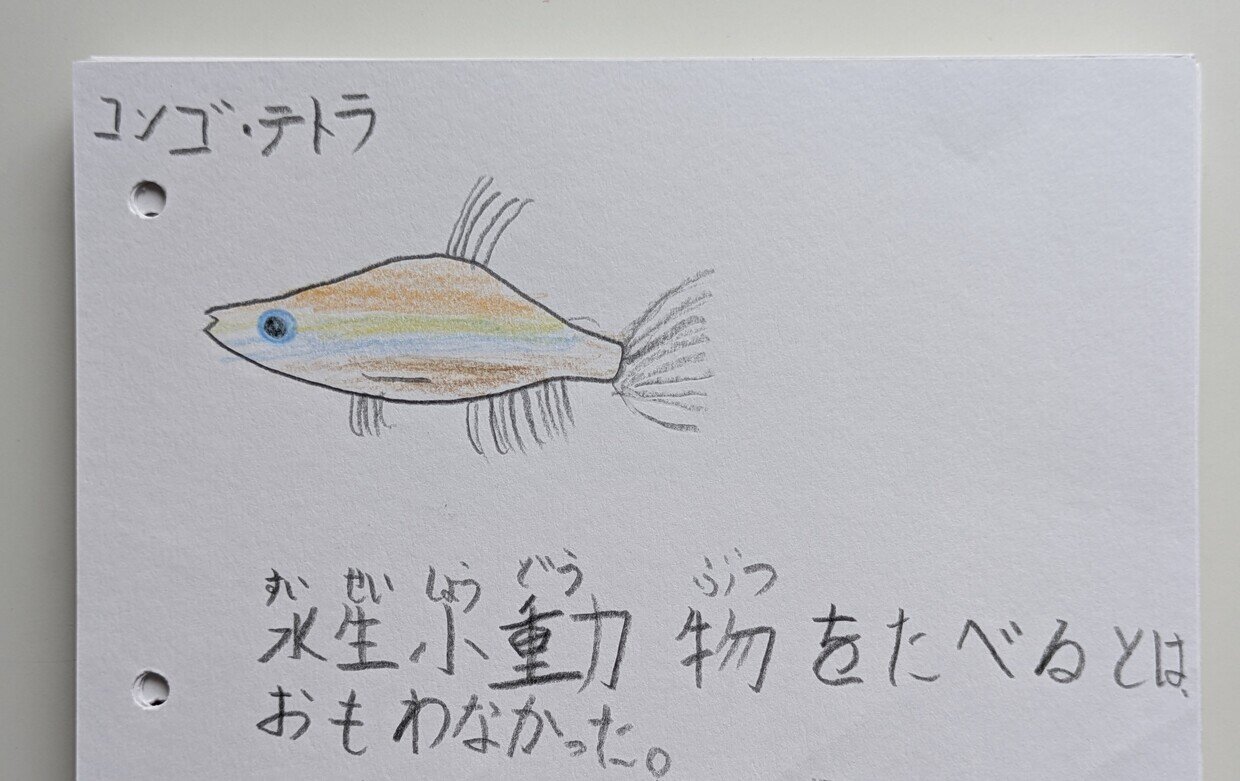 コンゴ・テトラ
すい せい しょう どう ぶつ
水生小動物をたべるとは、
おもわなかった。